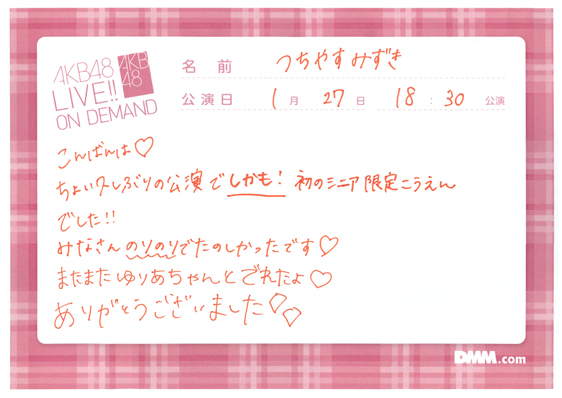 AKB48
LIVE!!
ON DEMAND
AKB
48
名前 つちやすみずき
公演日 1月27日 18:30公演
こんばんは♡
ちょい久しぶりの公演でしかも!初のシニア限定こうえん
でした!!
みなさんのりのりでたのしかったです♡
またまたゆりあちゃんとでれたよ♡
ありがとうございました
DMM.com